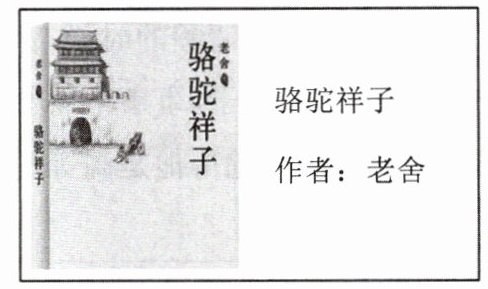 老舍
骆驼祥子
老舍
骆驼祥子
骆驼祥子
作者：老舍